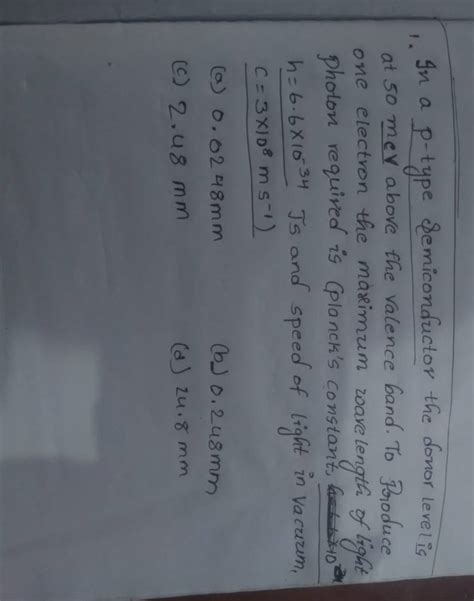 1. In a p-type semiconductor the donor level is
at 50 mev above the valence band. To Produce
one electron the maximum wavelength of light
photon required is (planck's constant,
h=6.6×10⁻³⁴ Js and speed of light in vacuum,
c=3×10⁸ m s⁻¹)
(a) 0.0248mm (b) 0.248mm,
(c) 2.48 mm (d) 24.8 mm